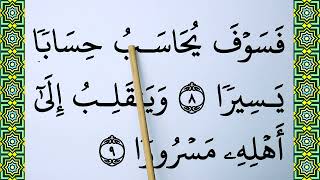 فَسَوۡفَ يُحَاسَبُ حِسَابٗا
يَسِيرٗا ٨ وَيَنقَلِبُ إِلَىٰٓ
أَهۡلِهِۦ مَسۡرُورٗا ٩